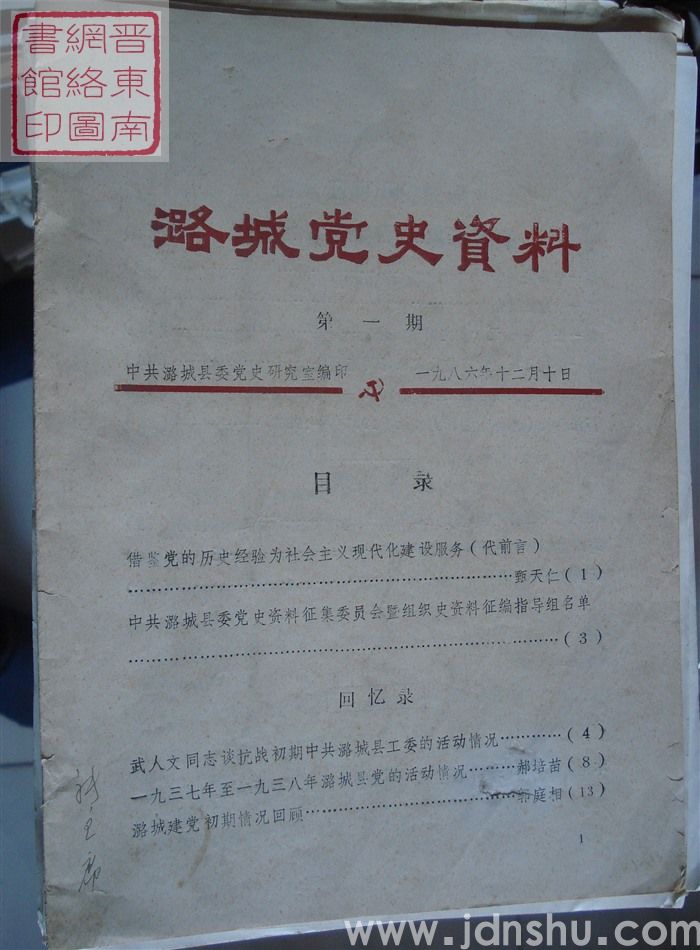 晋東南
網絡圖
書館印
潞城党史資料
第一期
中共潞城县委党史研究室编印 一九八六年十二月十日
目录
借鉴党的历史经验为社会主义现代化建设服务(代前言)
……甄天仁(1)
中共潞城县委党史资料征集委员会暨组织史资料征编指导组名单
……(3)
回忆录
武人文同志谈抗战初期中共潞城县工委的活动情况……(4)
一九三七年至一九三八年潞城县党的活动情况……郝培苗(8)
潞城建党初期情况回顾……郭庭相(13)
1
www.jdnshu.com